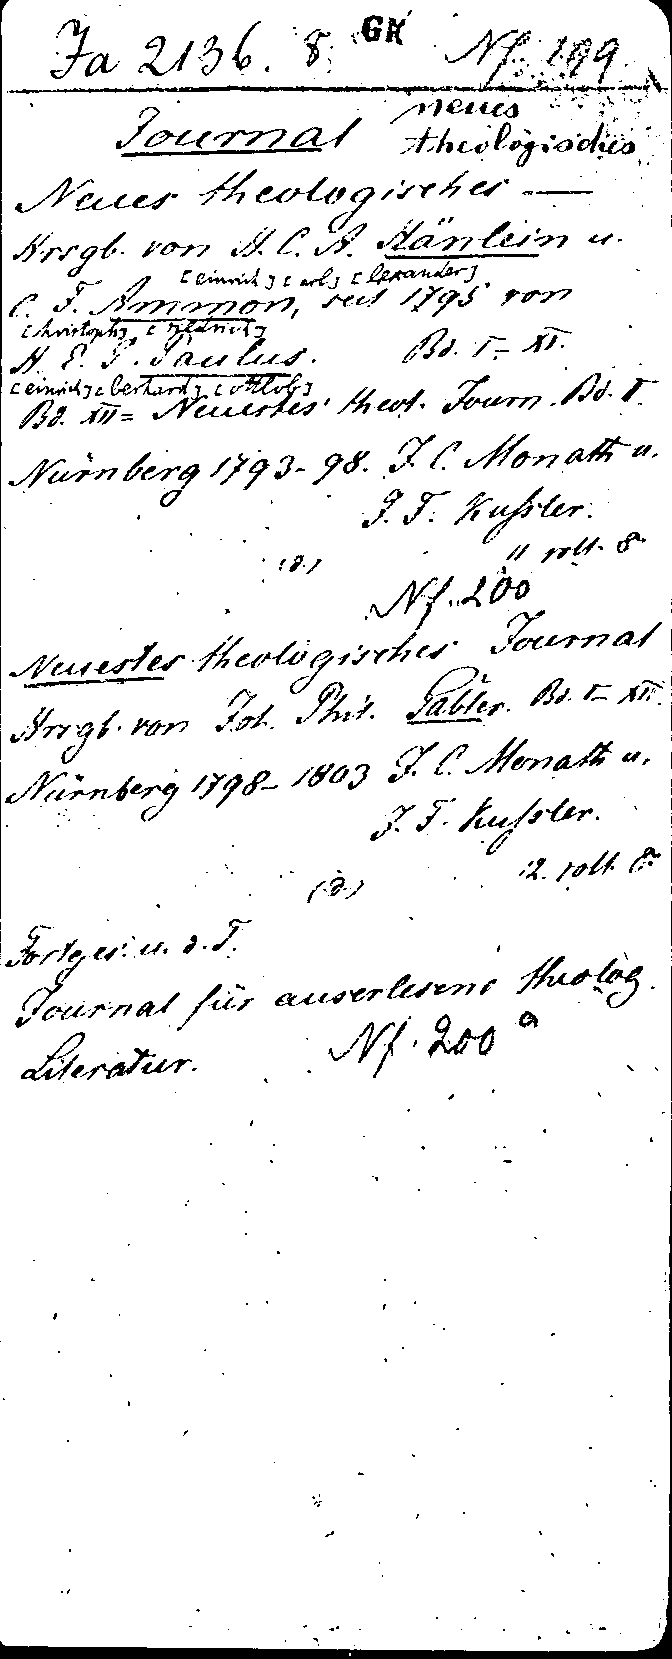 Ja 2136. 8. GK Nf. 199.
Journal neues
theologisches
Neues theologisches —
Hrsgb. von H. C. A. Hänlein u.
[einrich] [arl] [lexander]
C. F. Ammon, seit 1795 von
[hristoph] [riedrich]
H. E. G. Paulus. Bd. I - XI.
[einrich] [berhard] [ottlob]
Bd. XII = Neuestes theol. Journ. Bd. I.
Nürnberg 1793-98. J. C. Monath u.
J. F. Kuſsler.
(d.) 11 voll. 8
Nf. 200
Neuestes theologisches Journal
Hrsgb. von Joh. Phil. Gabler. Bd. I - XII.
Nürnberg 1798-1803 J. C. Monath u.
J. F. Kuſsler.
(d.) 12. voll. 8.
Fortges. u. d. T.
Journal für auserlesene theolog.
Literatur. Nf. 200 a